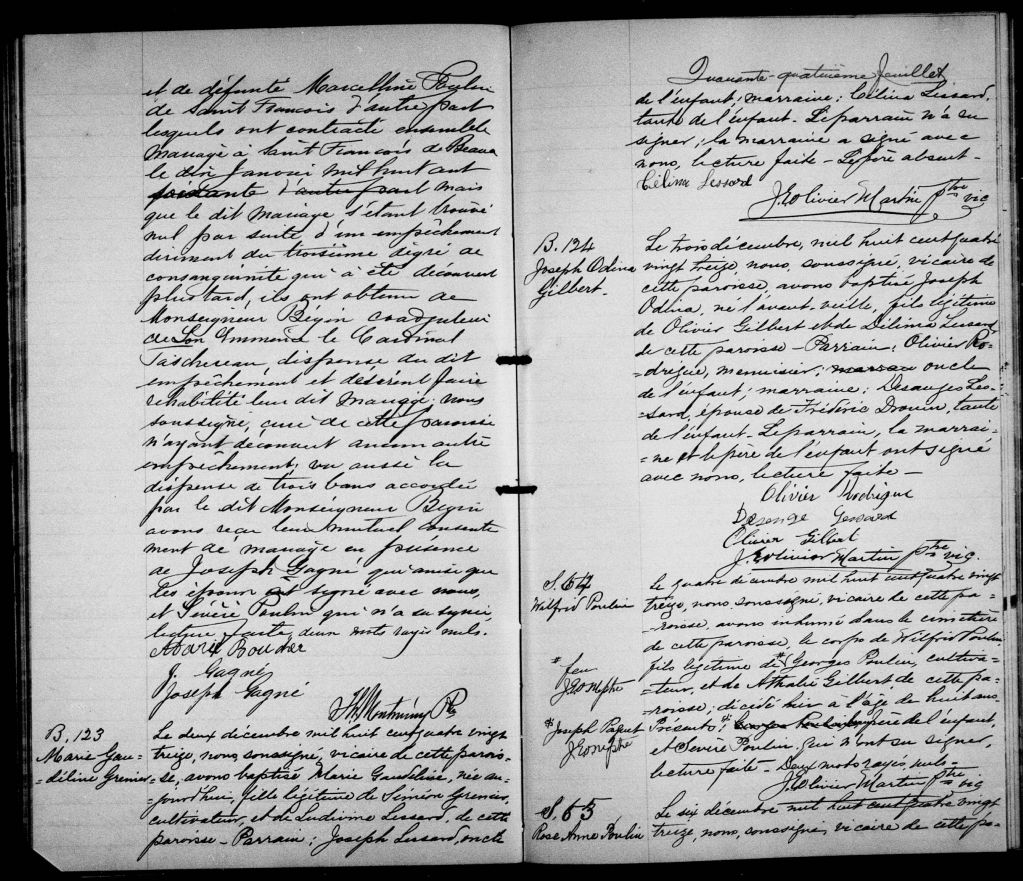 et de défunte Marcelline Poulin
de Saint François d'autre part
lesquels ont contracté ensemble
mariage à Saint François de Beauce
le dix Janvier mil huit cent
soixante d'autre part mais
que le dit mariage s'étant trouvé
nul par suite d'un empêchement
dirimant du troisième dégré de
consanguinité qui a été découvert
plus tard, ils ont obtenu de
Monseigneur Bégin coadjuteur
de Son Eminence le Cardinal
Taschereau, dispense du dit
empêchement et désirant faire
réhabilité leur dit mariage, nous
soussigné, curé de cette paroisse
n'ayant découvert aucun autre
empêchement, vu aussi la
dispense de trois bans accordée
par le dit Monseigneur Bégin
avons reçu leur mutuel consente
ment de mariage en présence
de Joseph Gagné qui ainsi que
les époux ont signé avec nous,
et Sévère Poulin qui n'a su signer,
lecture faite, deux mots rayés nuls.
Marie Boucher
J. Gagné
Joseph Gagné
Montminy Ptre
B. 123
Marie Gau-
déline Grenier
Le deux décembre mil huit cent quatre vingt
treize, nous, soussigné, vicaire de cette parois-
-se, avons baptisé Marie Gaudéline, née au-
-jourd'hui, fille légitime de Siméon Grenier,
cultivateur, et de Ludivine Lessard, de cette
paroisse - Parrain; Joseph Lessard, oncle
Quarante-quatrième feuillet
de l'enfant; marraine; Célina Lessard,
tante de l'enfant. Le parrain n'a su
signer; la marraine a signé avec
nous, lecture faite - Le père absent -
Célina Lessard
J. E. Olivier Martin ptre vic
B. 124
Joseph Odina
Gilbert.
Le trois décembre, mil huit cent quatre
vingt treize, nous, soussigné, vicaire de
cette paroisse, avons baptisé Joseph
Odina, né l'avant-veille, fils légitime
de Olivier Gilbert et de Délima Lessard
de cette paroisse - Parrain; Olivier Ro-
-drigue, menuisier, oncle
de l'enfant; marraine; Desanges Les-
-sard, épouse de Frédéric Drouin, tante
de l'enfant - Le parrain, la marrai-
-ne et le père de l'enfant ont signé
avec nous, lecture faite -
Olivier Rodrigue
Desange Lessard
Olivier Gilbert
J. E. Olivier Martin ptre vic.
S. 64
Wilfrid Poulin
Le quatre décembre mil huit cent quatre vingt
treize, nous, soussigné, vicaire de cette pa-
-roisse, avons inhumé dans le cimetière
de cette paroisse, le corps de Wilfrid Poulin
fils légitime de * Georges Poulin, cultiva-
-teur, et de Athalie Gilbert de cette pa-
-roisse; décédé hier à l'âge de huit ans.
* feu
J E O M ptre
* Joseph Paput
J E O M ptre
Présents; * père de l'enfant,
et Sévère Poulin qui n'ont su signer,
lecture faite - Deux mots rayés, nuls -
J. E. Olivier Martin ptre vic
S. 65
Rose Anna Poulin
Le six décembre mil huit cent quatre vingt
treize, nous, soussigné, vicaire de cette pa-